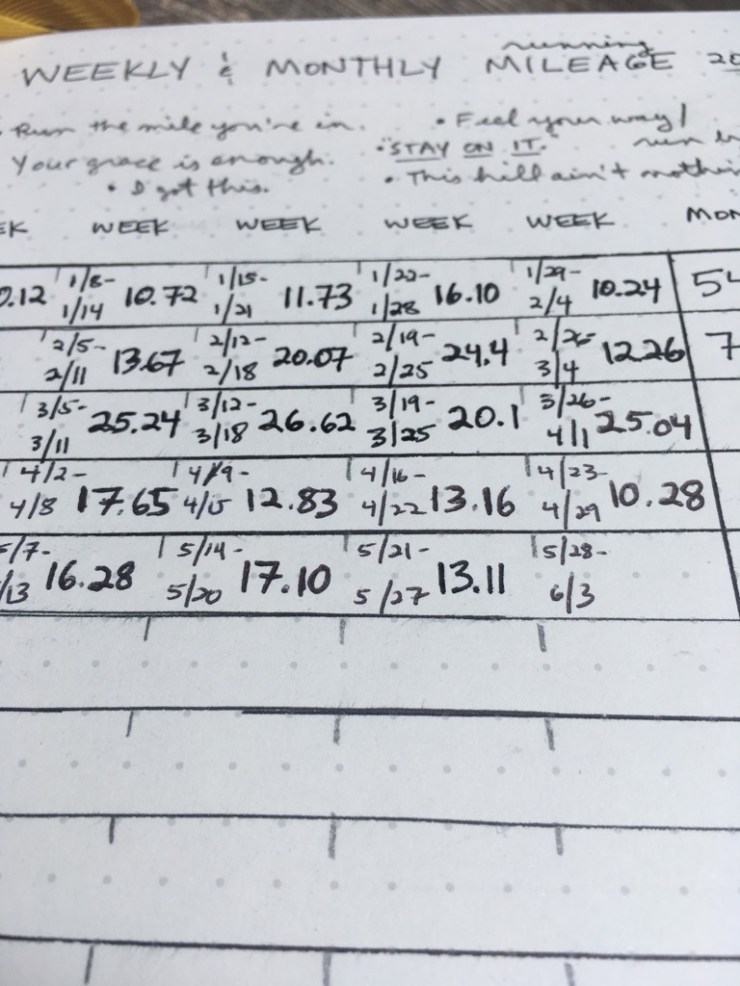 running
WEEKLY & MONTHLY MILEAGE 20
Run the mile you're in. • Feel your way!
Your grace is enough. • "STAY ON IT." run
• I got this. • This hill ain't nothin
EK WEEK WEEK WEEK WEEK MON
0.12 1/8- 1/14 10.72 1/15- 1/21 11.73 1/22- 1/28 16.10 1/29- 2/4 10.24 54
2/5- 2/11 13.67 2/12- 2/18 20.07 2/19- 2/25 24.4 2/26- 3/4 12.26 7
3/5- 3/11 25.24 3/12- 3/18 26.62 3/19- 3/25 20.1 3/26- 4/1 25.04
4/2- 4/8 17.65 4/9- 4/15 12.83 4/16- 4/22 13.16 4/23- 4/29 10.28
5/7- /13 16.28 5/14- 5/20 17.10 5/21- 5/27 13.11 5/28- 6/3